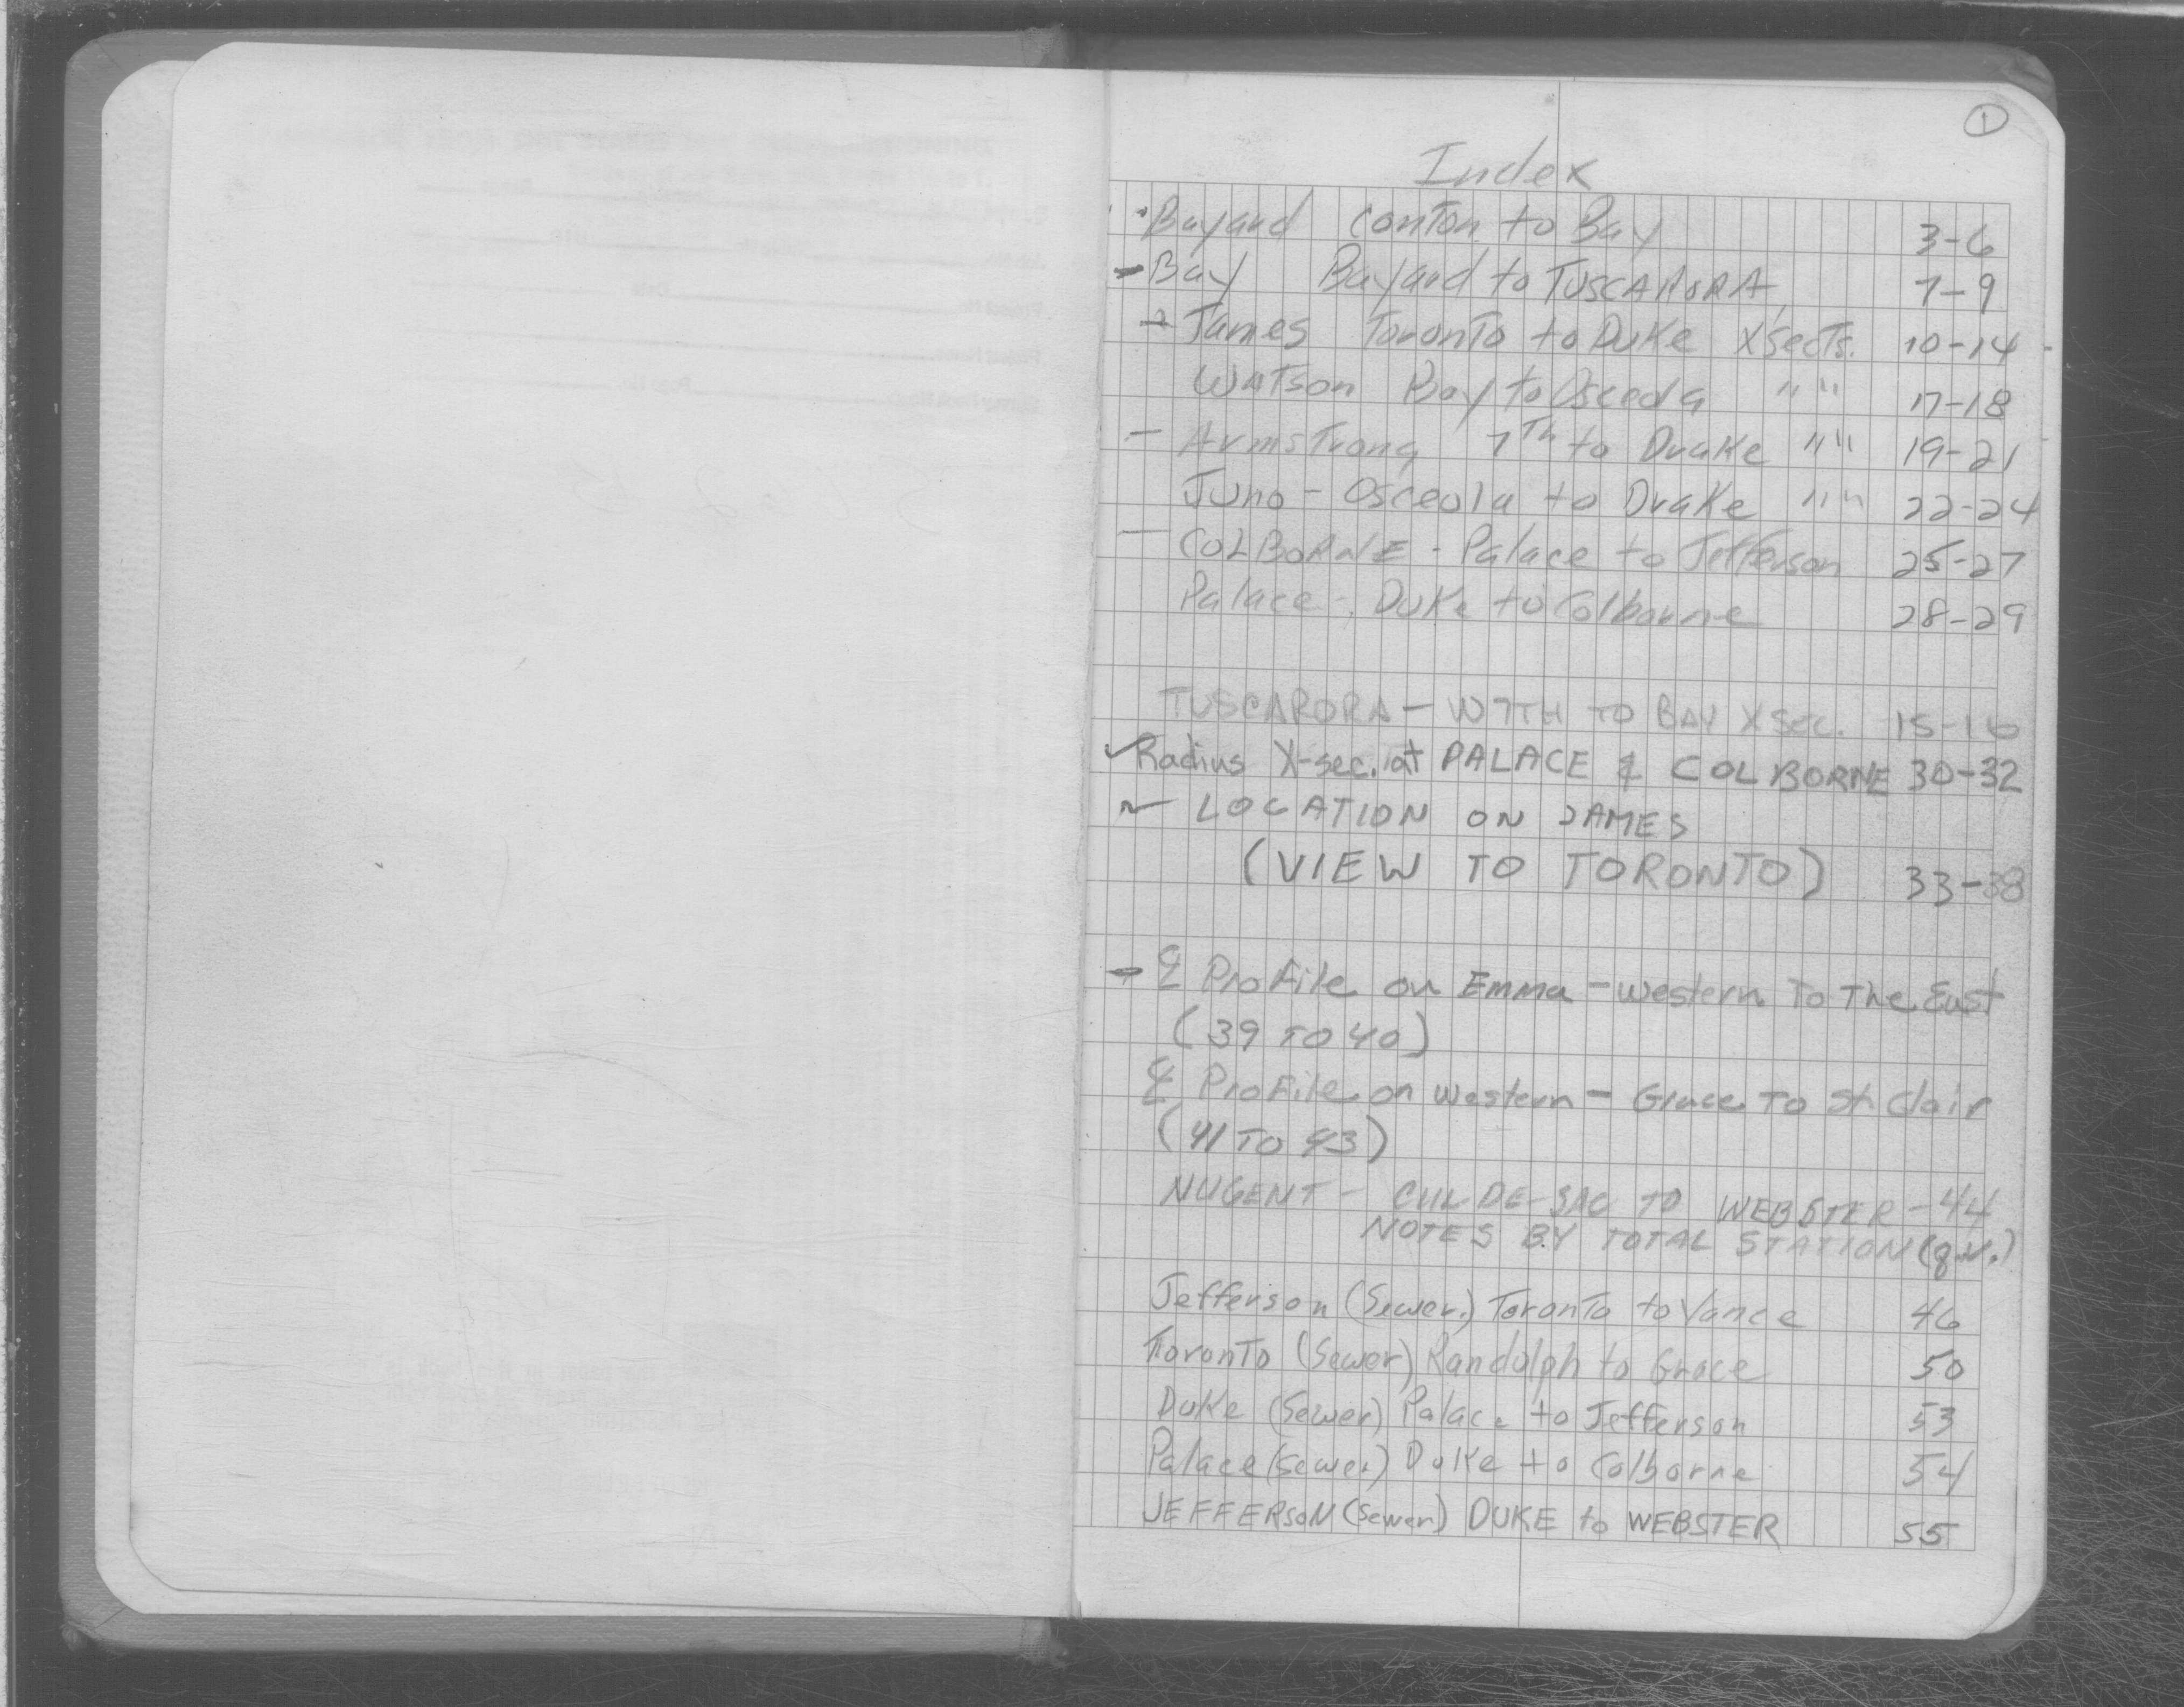 1
Index
Bayard Canton to Bay 3-6
- Bay Bayard to TUSCARORA 7-9
- James Toronto to Duke X Sects. 10-14 -
Watson Bay to Osceola " " 17-18
- Armstrong 7Th to Drake " " 19-21
Juno - Osceola to Drake " " 22-24
- COLBORNE - Palace to Jefferson 25-27
Palace - Duke to Colborne 28-29
TUSCARORA - W 7TH TO BAY X SEC. 15-16
✓ Radius X-sec. at PALACE & COLBORNE 30-32
~ LOCATION ON JAMES
(VIEW TO TORONTO) 33-38
- ℄ Profile on Emma - Western To The East
(39 TO 40)
℄ Profile on Western - Grace To St. Clair
(41 TO 43)
NUGENT - CUL DE-SAC TO WEBSTER - 44
NOTES BY TOTAL STATION (q.v.)
Jefferson (Sewer.) Toronto to Vance 46
Toronto (Sewer) Randolph to Grace 50
Duke (Sewer) Palace to Jefferson 53
Palace (Sewer) Duke to Colborne 54
JEFFERSON (Sewer) DUKE to WEBSTER 55